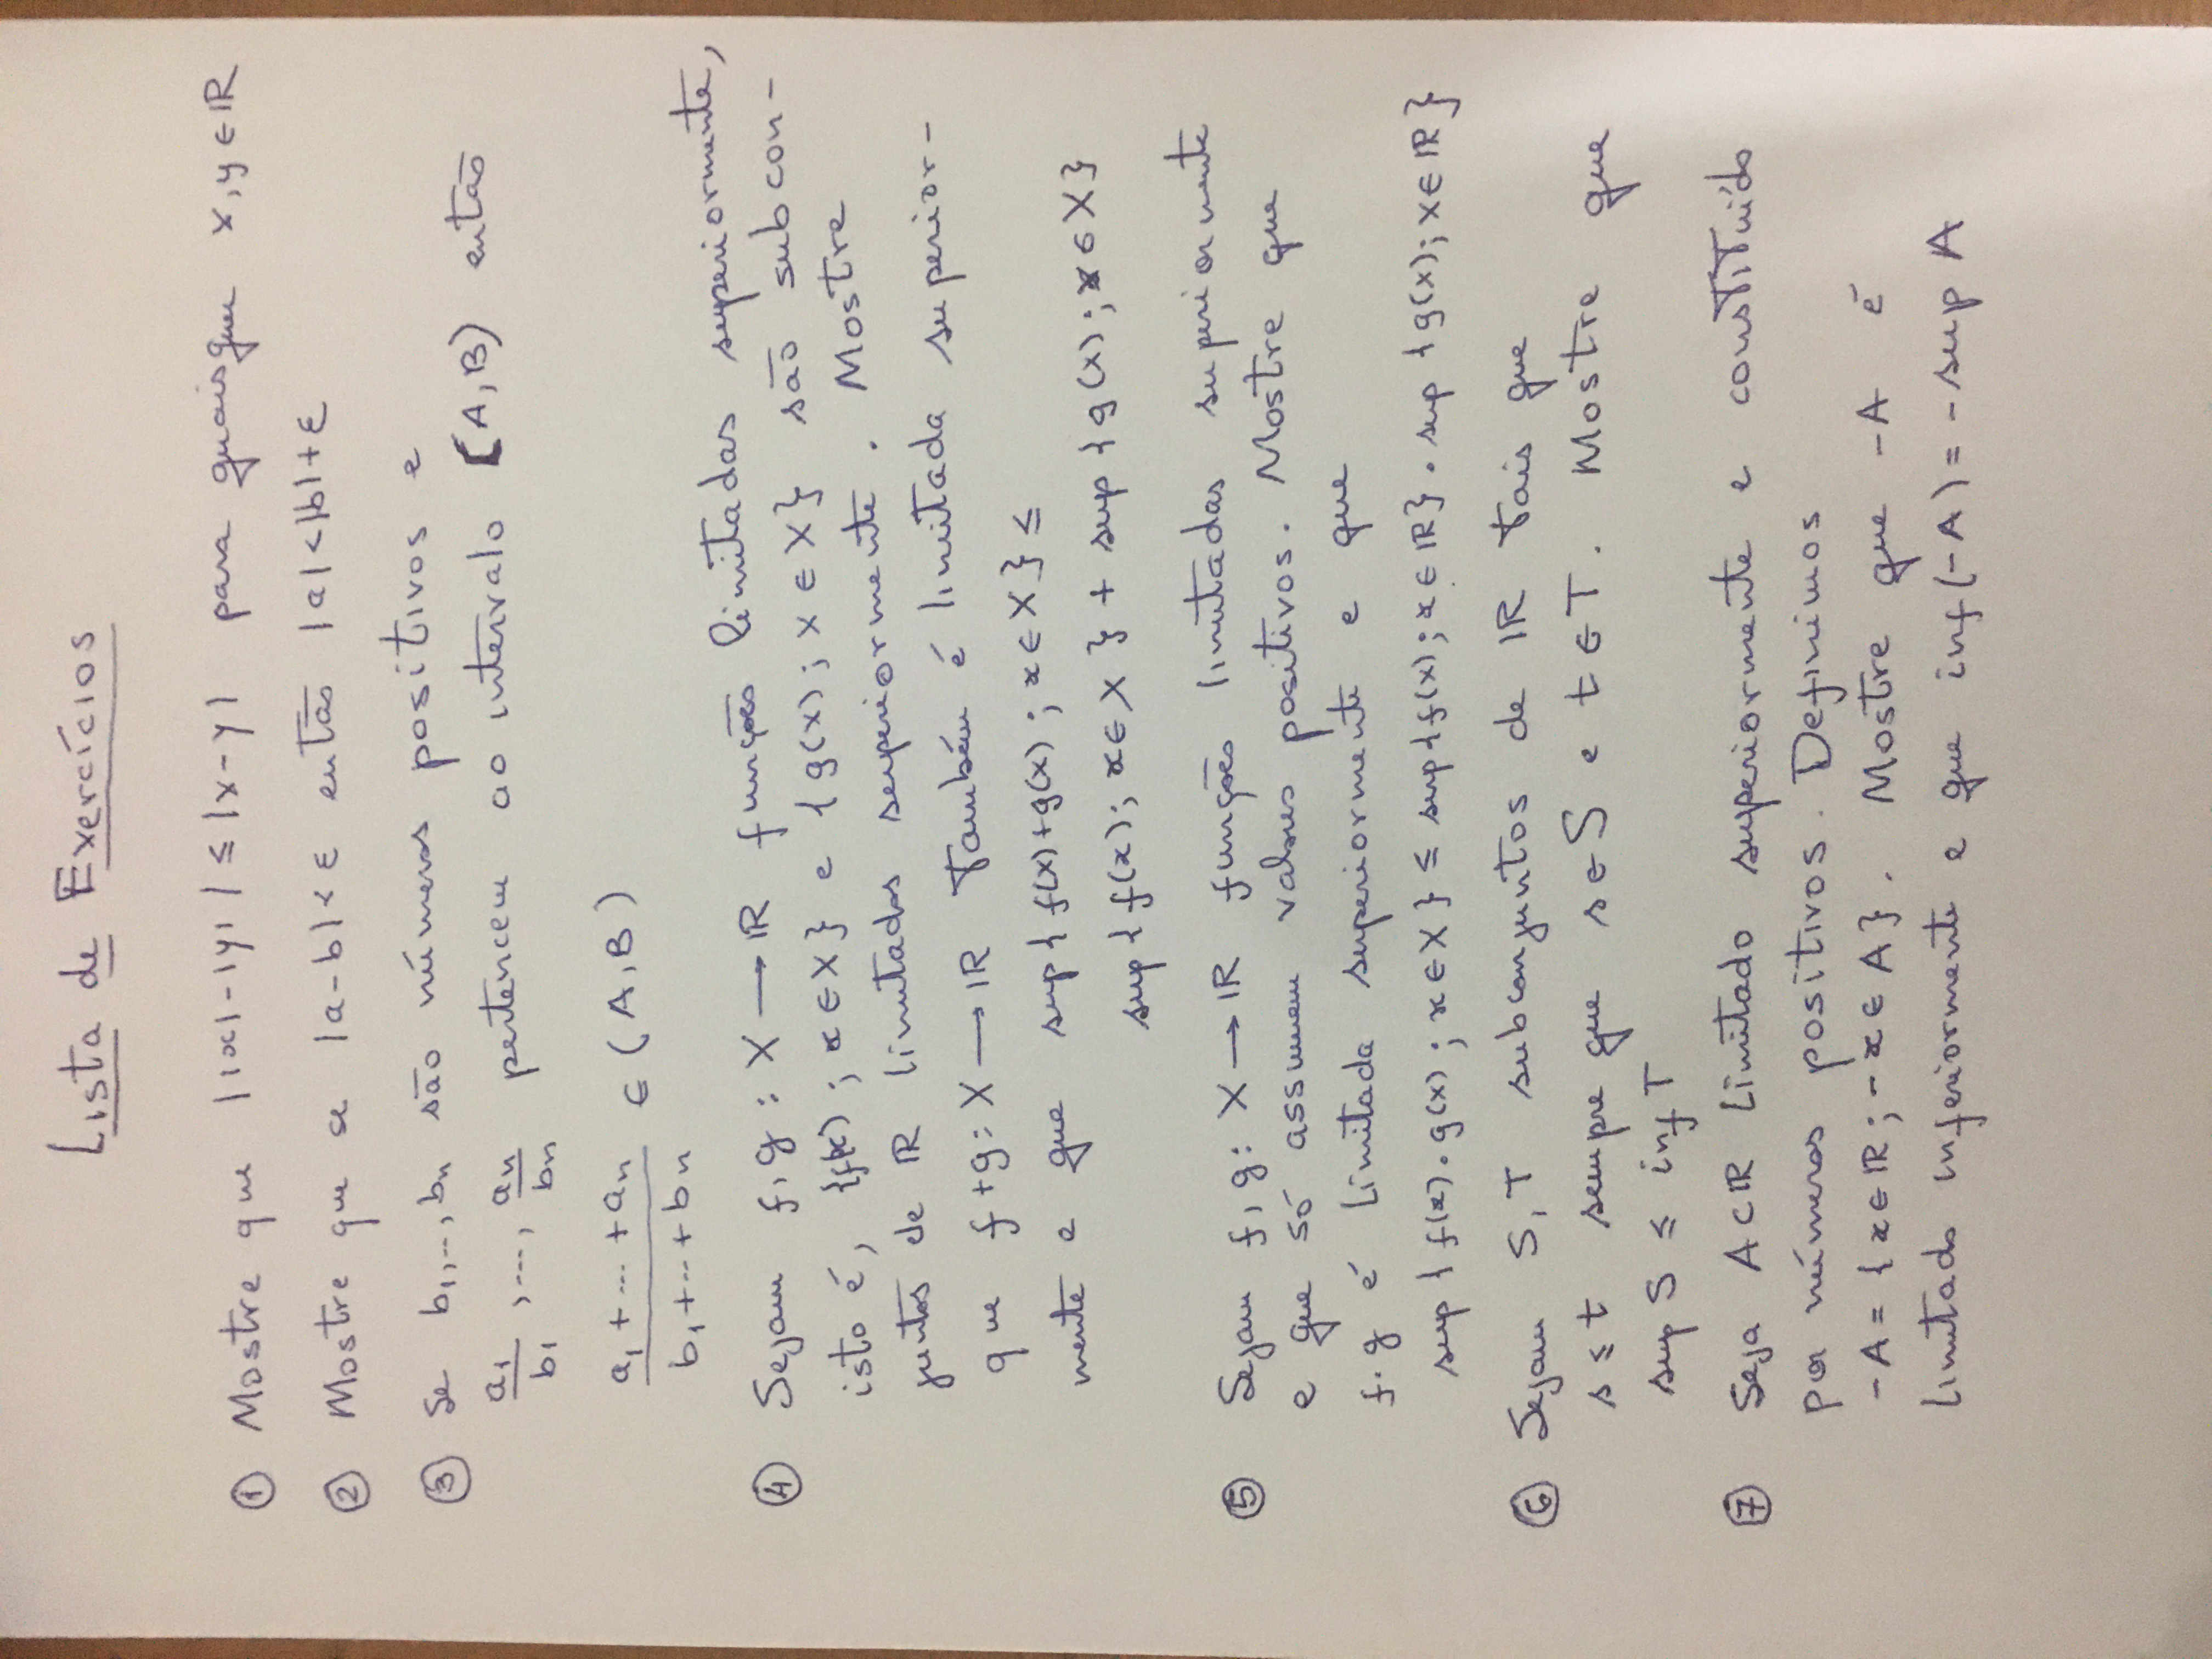 Lista de Exercícios
① Mostre que ||x|-|y|| ≤ |x-y| para quaisquer x, y ∈ ℝ
② Mostre que se |a-b| < ε então |a| < |b| + ε
③ Se b₁,..., bₙ são números positivos e
a₁/b₁ ,..., aₙ/bₙ pertencem ao intervalo (A, B) então
(a₁ + ... + aₙ)/(b₁ + ... + bₙ) ∈ (A, B)
④ Sejam f, g : X → ℝ funções limitadas superiormente,
isto é, {f(x) ; x ∈ X} e {g(x) ; x ∈ X} são subcon-
juntos de ℝ limitados superiormente. Mostre
que f+g : X → ℝ também é limitada superior-
mente e que sup{f(x)+g(x) ; x ∈ X} ≤
sup{f(x); x ∈ X} + sup{g(x); x ∈ X}
⑤ Sejam f, g : X → ℝ funções limitadas superiormente
e que só assumem valores positivos. Mostre que
f.g é limitada superiormente e que
sup{f(x).g(x) ; x ∈ X} ≤ sup{f(x); x ∈ ℝ} . sup{g(x); x ∈ ℝ}
⑥ Sejam S, T subconjuntos de ℝ tais que
s ≤ t sempre que s ∈ S e t ∈ T. Mostre que
sup S ≤ inf T
⑦ Seja A ⊂ ℝ limitado superiormente e constituído
por números positivos. Definimos
-A = {x ∈ ℝ ; -x ∈ A}. Mostre que -A é
limitado inferiormente e que inf(-A) = -sup A